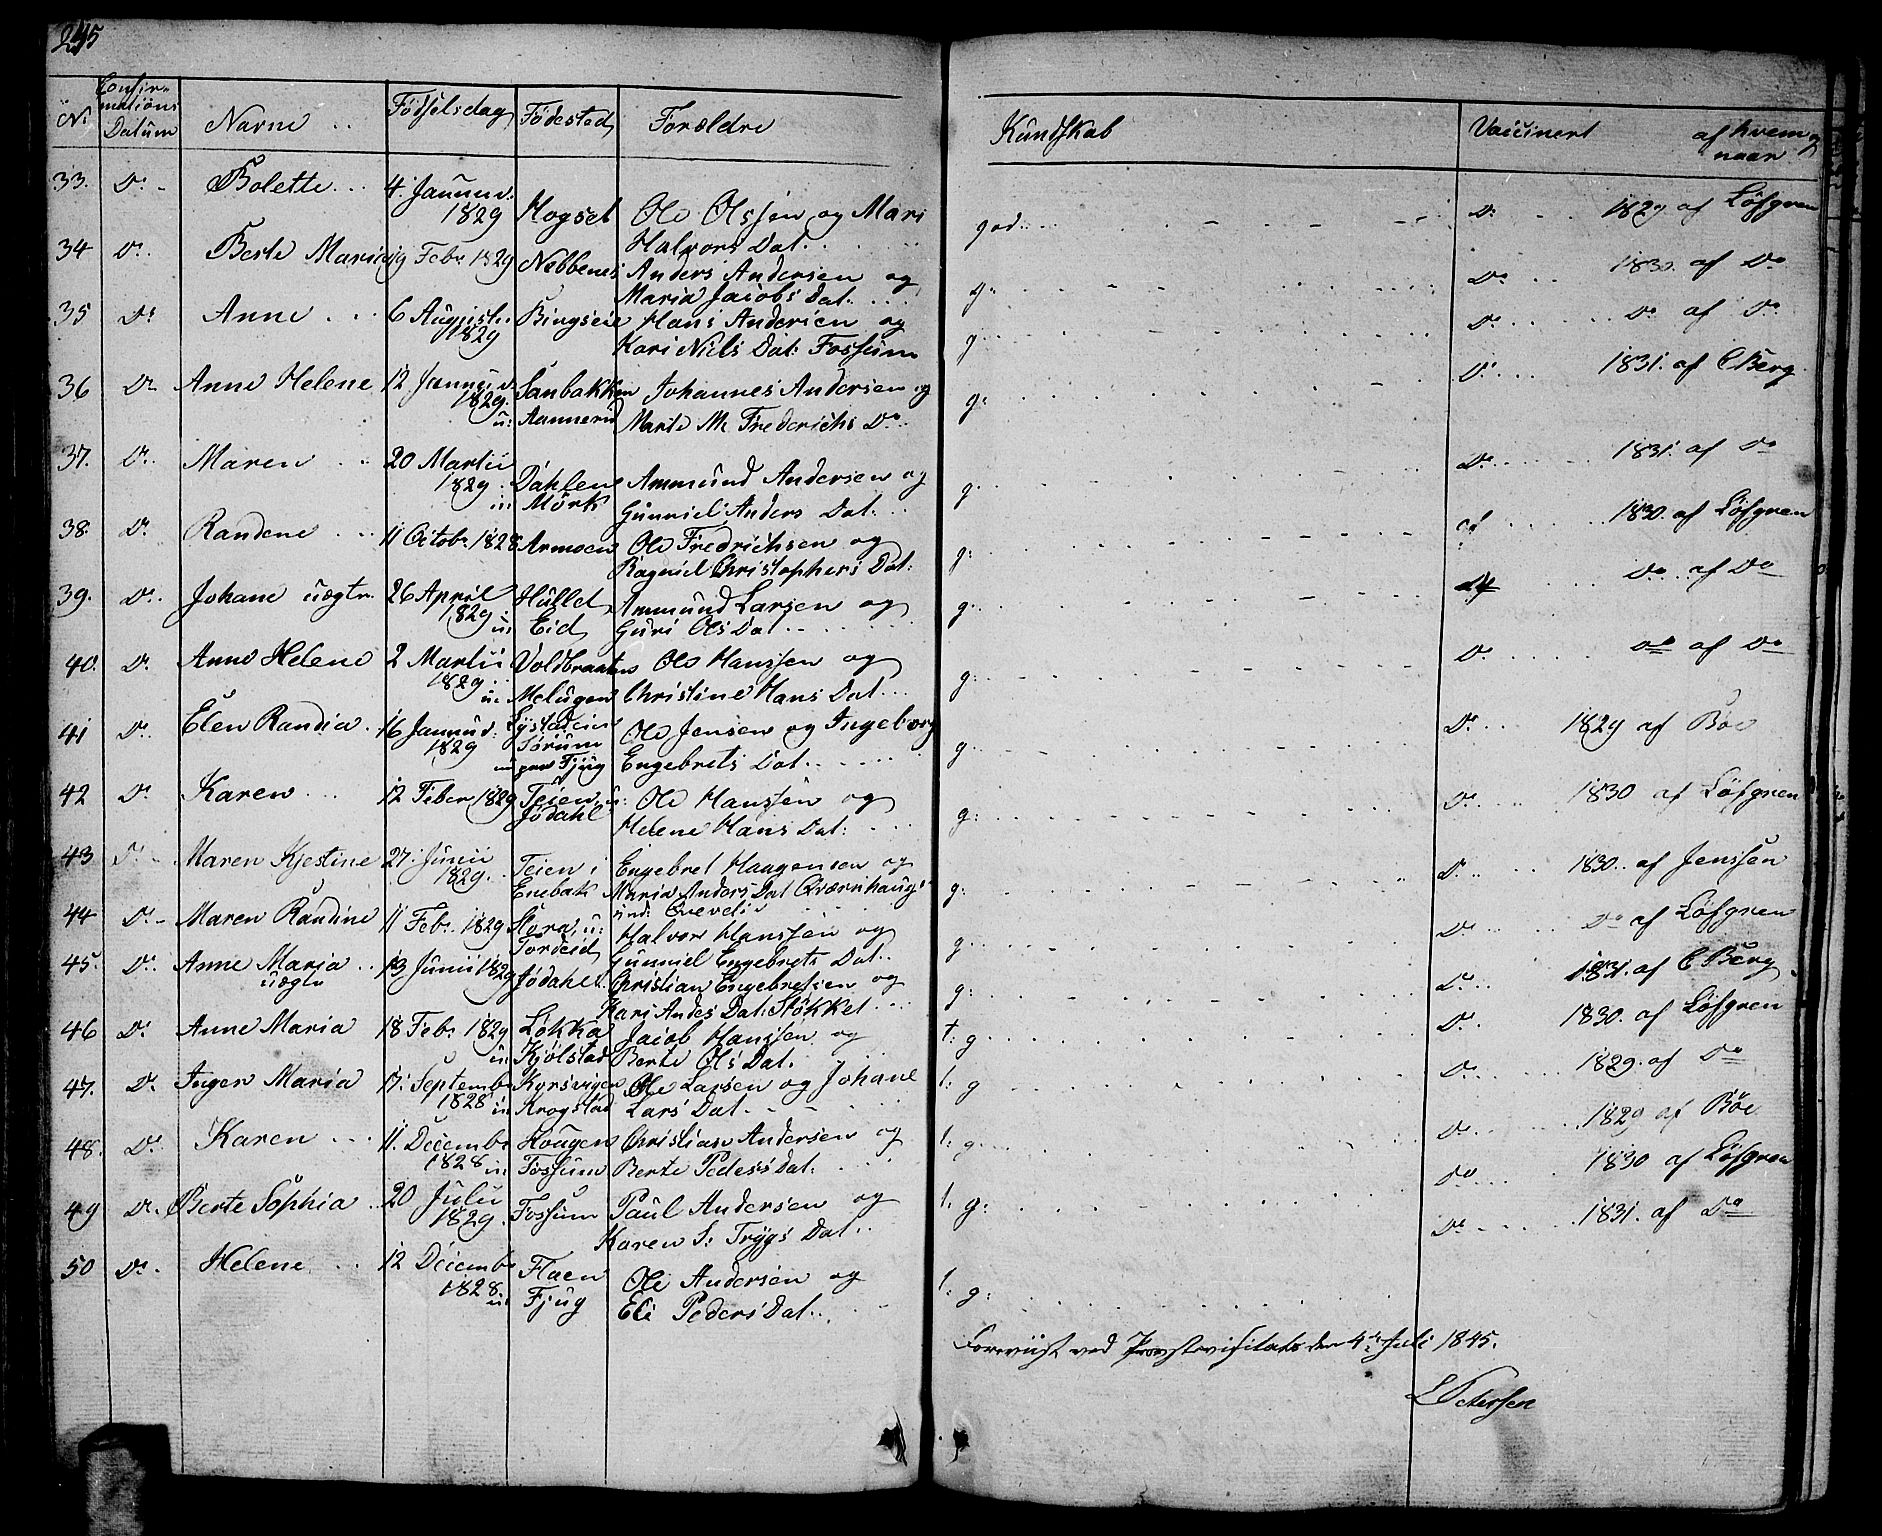 245
No Confirmations Datum Navne .. Födselsdag Födested Forældre Kundskab Vaccinert af hvem og naar
33. Do - Bolette ... 4. Januar: 1829 Hogset Ole Olssen og Mari Halvors Dat. god: Do 1829 af Löfgren
34 Do. Berte Marie 19 Febr. 1829 Nebbenes Anders Andersen og Maria Jacobs Dat. g: Do 1830. af Do
35 Do Anne ... 6 Augusti 1829 Bingseie Hans Andersen og Kari Niels Dat: Fossum g: Do Do af Do
36 Do Anne Helene 12 Januar 1829. u: Sanbakken Aannerud Johannes Andersen og Marte M. Frederichs Do. g: Do 1831. af C Berg
37. Do. Maren ... 20 Martii 1829. u: Dahlen Mörk Ammund Andersen og Gunniel Anders Dat. g: Do 1831. af Do
38. Do. Randene ... 11 Octobr. 1828 Aamoen Ole Fredrichsen og Ragniel Christophers Dat. g: 1830. af Löfgren
39. Do. Johane uægte. 26 April 1829 u: Hullet Eid Ammund Larsen og Guri Ols Dat. g: Do af Do
40. Do. Anne Helene 2 Martii 1829. u: Voldbraaten Melugen Ole Hanssen og Christine Hans Dat. g: Do. Do af Do
41 Do. Elen Randia. 16 Januar: 1829 Sörum Fjug Ole Jensen og Ingeborg Engebrets Dat. g: Do 1829 af Böe
42 Do Karen ... 12 Feber 1829 Teien, u: Jödahl Ole Hanssen og Helene Hans Dat: g: Do 1830 af Löfgren
43 Do - Maren Kjestine 27. Junii 1829. Teien i Enebak Engebret Haagensen og Maria Anders Dat Qværnhaug g: Do 1830. af Jenssen
44 Do - Maren Randine 11 Feb. 1829 u: Tordeid Halvor Hanssen og Gunniel Engebrets Dat. g: Do Do af Löfgren
45. Do. Anne Maria uægte 13 Junii 1829 Jödahl Christian Engebretsen og Kari Andes Dat. Stökket g: Do 1831. af C Berg
46 Do Anne Maria 18 Feb. 1829 u: Lökka Kjölstad Jacob Hanssen og Berte Ols Dat. t: g Do. 1830. af Löfgren
47. Do. Inger Maria 17. Septembr 1828 u: Krogstad Ole Larsen og Johane Lars Dat. t: g Do. 1829. af Do
48. Do Karen ... 11. Decembr 1828 u: Hougen Fossum Christian Andersen og Berte Peders Dat: t: g: Do 1829 af Böe
49 Do. Berte Sophia .. 20 Julii 1829. Fossum Paul Andersen og Karen S: Trygs Dat. t: g: Do 1830 af Löfgren
50 Do. Helene ... 12 Decembr 1828. u: Flaen Fjug Ole Andersen og Eli Peders Dat. t: g: Do 1831. af Do
Foreviist ved Provstevisitats den 4de Juli 1845.
Petersen